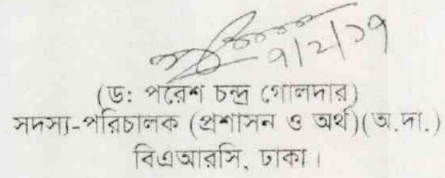 ৭|২|১৭
(ড: পরেশ চন্দ্র গোলদার)
সদস্য-পরিচালক (প্রশাসন ও অর্থ)(অ.দা.)
বিএআরসি, ঢাকা।